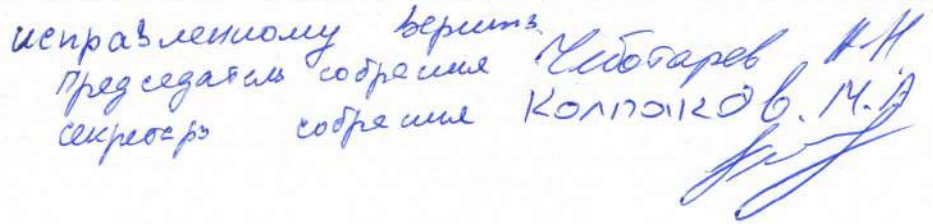 исправленному верить
Председатель собрания Чеботарев Н Н
секретарь собрания Колпаков. М. А